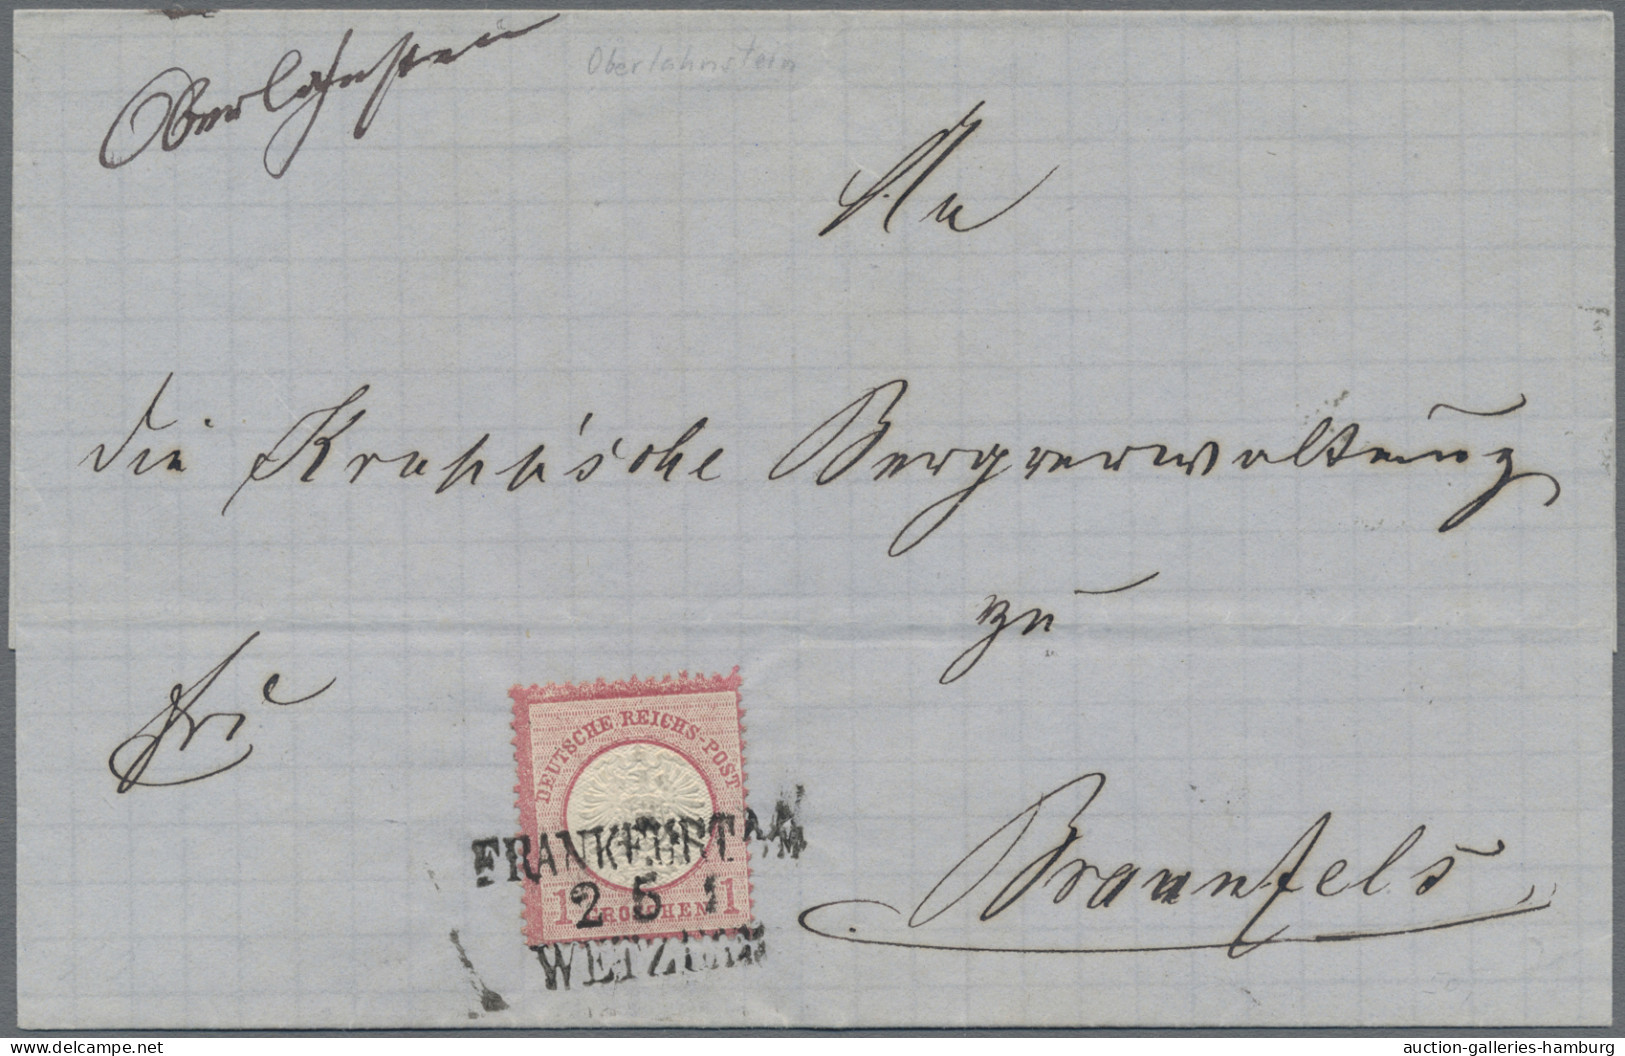 Oberlahnstein
Oberlahnstein
An
die Krupp'sche Bergverwaltung
zu
Braunfels
DEUTSCHE REICHS-POST
1 GROSCHEN 1
FRANKFURT A/M
2 5
WETZLAR
www.delcampe.net
auction-galleries-hamburg